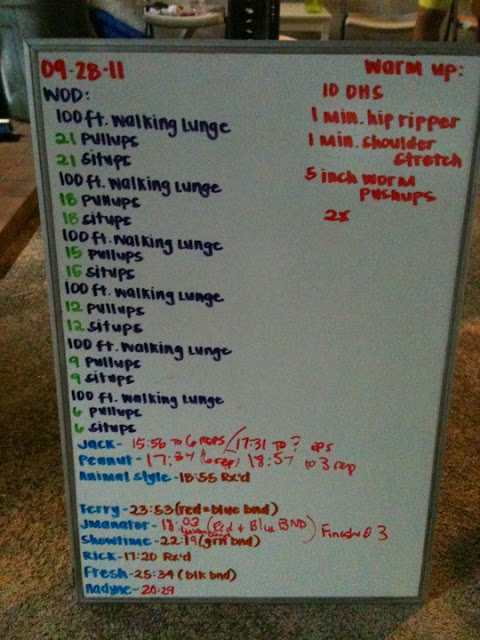 09-28-11
WOD:
100 ft. Walking Lunge
21 Pullups
21 Situps
100 ft. Walking Lunge
18 Pullups
18 Situps
100 ft. Walking Lunge
15 Pullups
15 Situps
100 ft. Walking Lunge
12 Pullups
12 Situps
100 ft. Walking Lunge
9 Pullups
9 Situps
100 ft. Walking Lunge
6 Pullups
6 Situps
Jack- 15:56 to 6 reps / 17:31 to ?
Peanut- 17:37 18:57 to 3 rep
Animal Style- 18:55 Rx'd
Ferry- 23:53 (red+blue bnd)
Jmanator- 18:03 (Red + Blue BND) Finished 3
Showtime- 22:19 (grn bnd)
Rick- 17:20 Rx'd
Fresh- 25:34 (blk bnd)
Nadyne- 20:29
Warm up:
10 DHS
1 min. hip ripper
1 min. shoulder
stretch
5 inch worm
pushups
2x